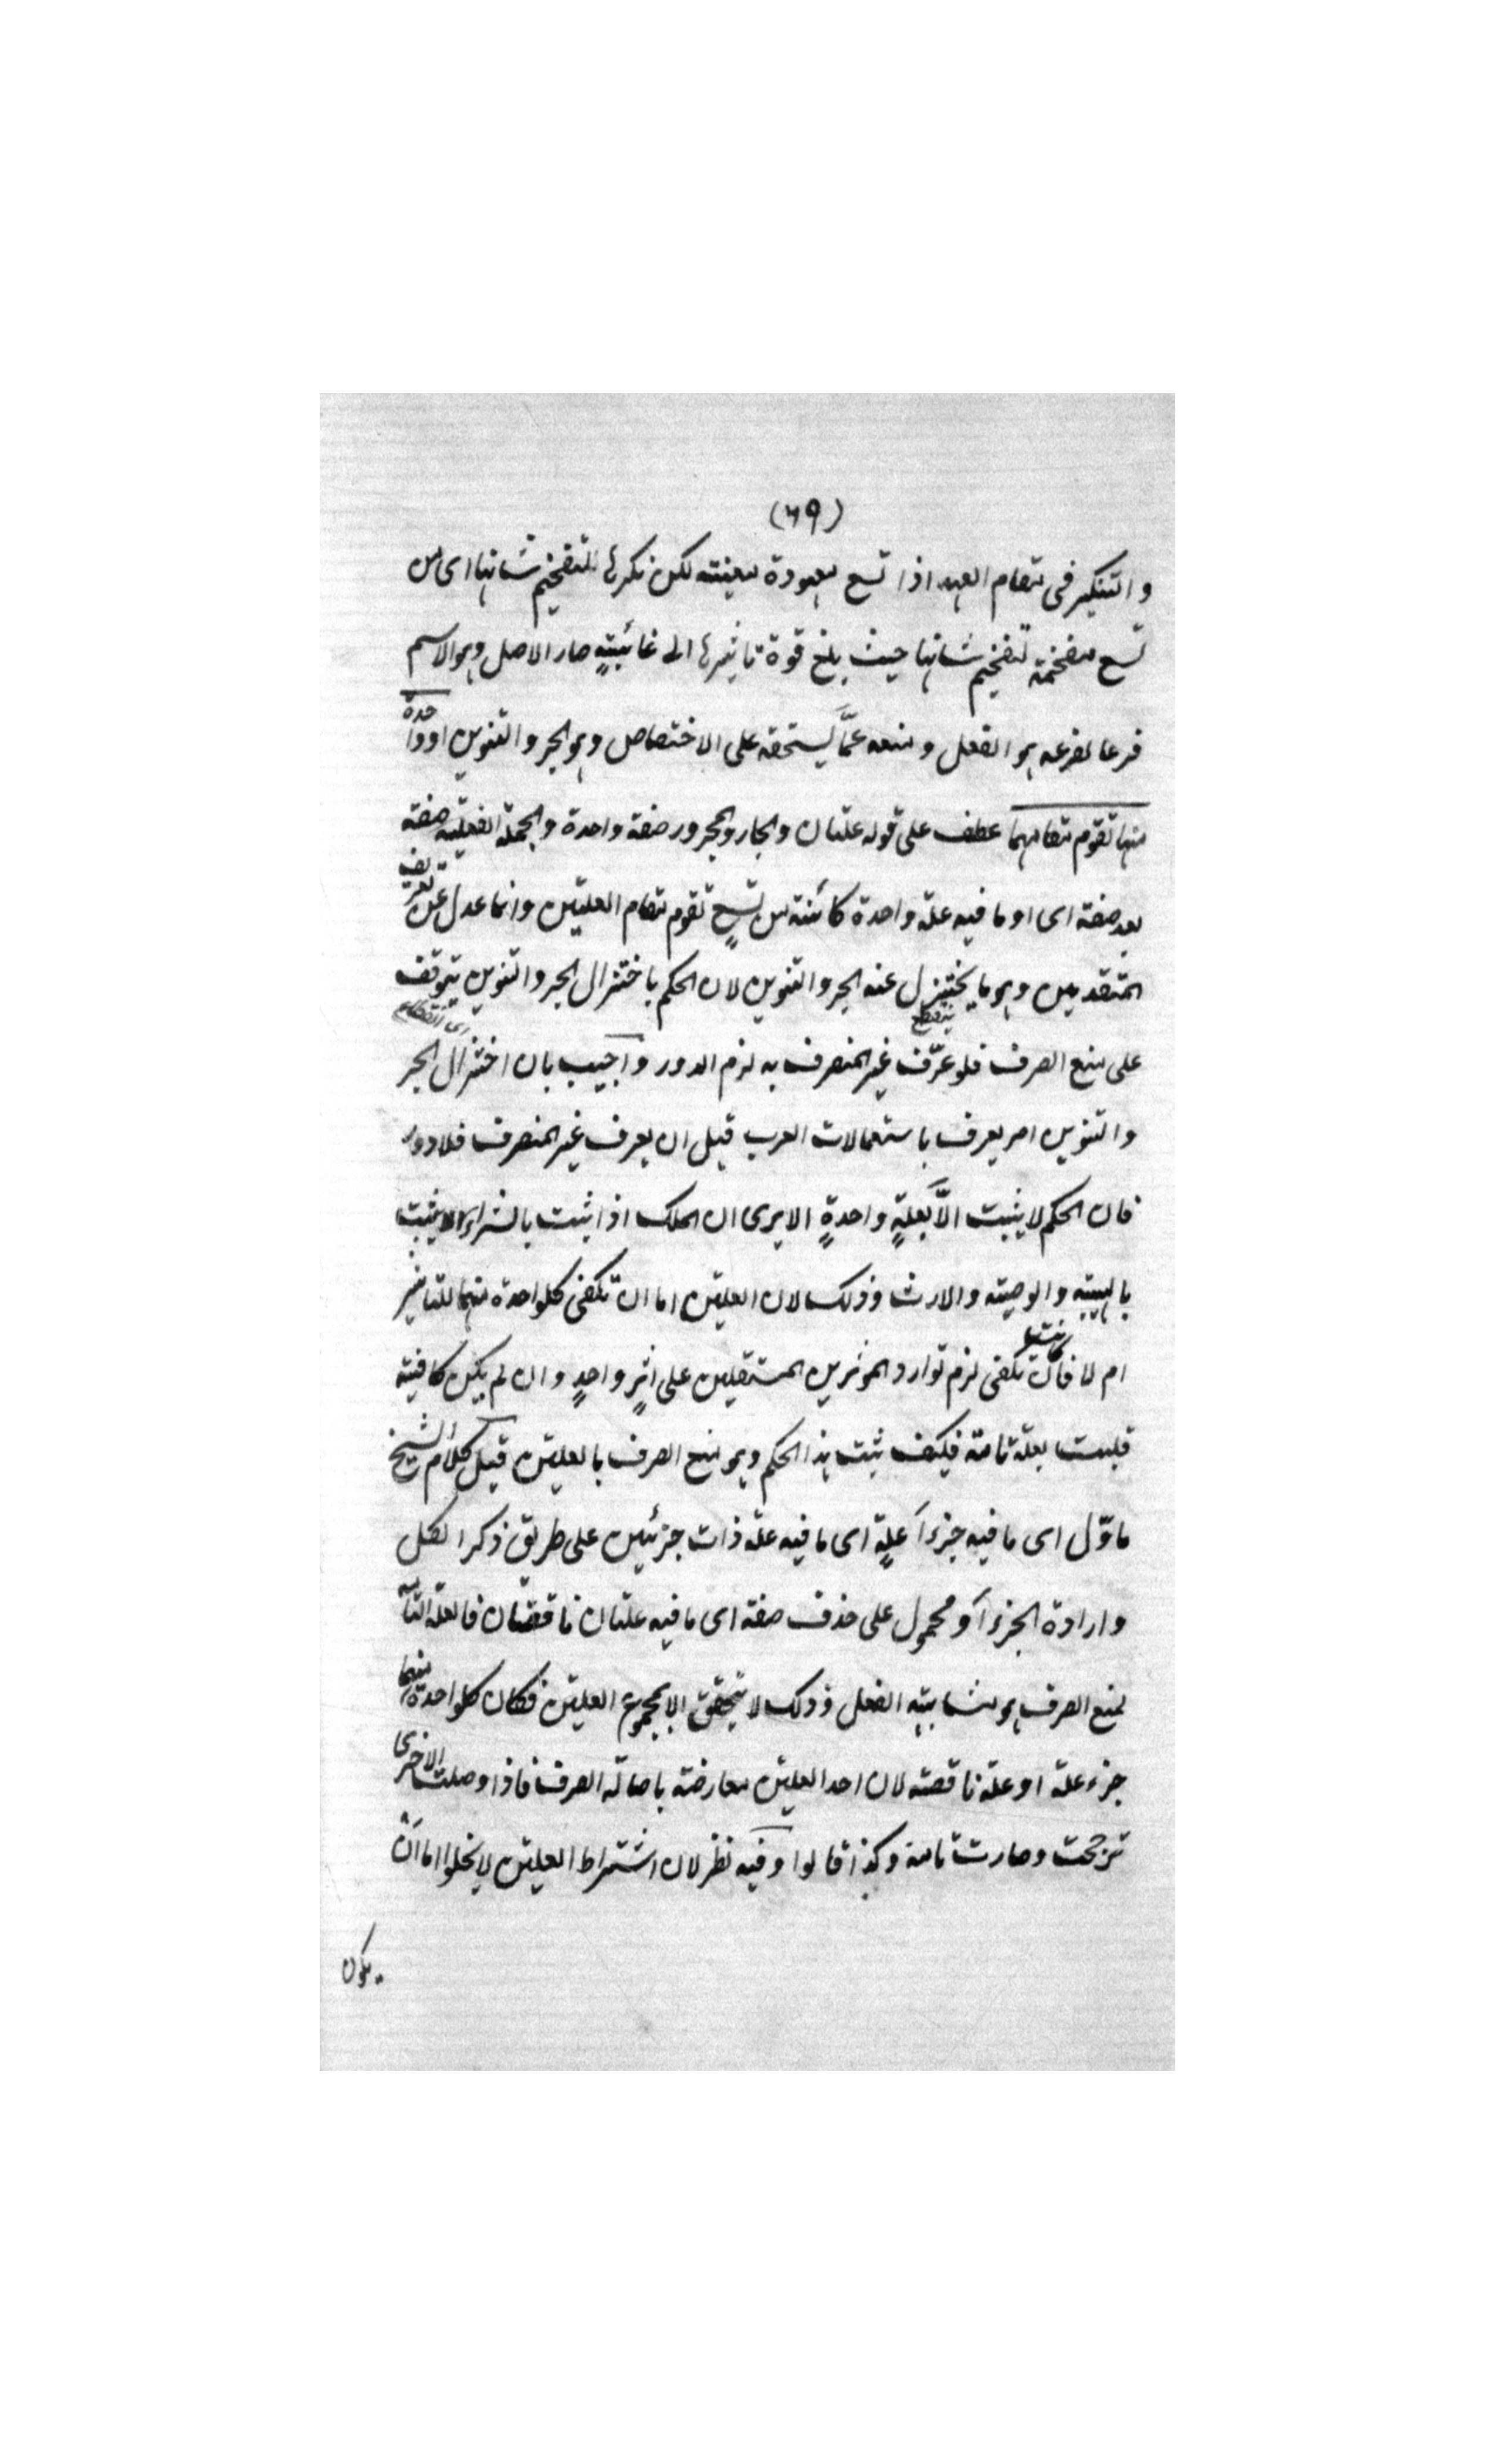 (٦٩)
والتنكير فى مقام العهد اذا تسع معهودة معينته لكن نكرها لتفخيم شانها اى من
تسع مفخمة تفخيم شانها حيث بلغ قوة تاثيرها الى غائيتهٍ صار الاصل وهو الاسم
فرعا لفرعه هو الفعل ومنعه عمّا يستحقه على الاختصاص وهو الجر والتنوين او واحدة
منها تقوم مقامهما عطف على قوله علتان والجار والمجرور صفة واحدة والجملة الفعلية صفته
بعد صفته اى او ما فيه علة واحدة كائنة من تسعٍ تقوم مقام العلتين وانما عدل عن تعريف
المتقدمين وهو ما يختزل عنه الجر والتنوين لان الحكم باختزال الجر والتنوين يتوقف
ينقطع
اى انقطاع
على منع الصرف فلو عرّف غير المنصرف به لزم الدور واجيب بان اختزال الجر
والتنوين امر يعرف باستعمالات العرب قبل ان يعرف غير المنصرف فلا دور
فان الحكم لا يثبت الّا بعلةٍ واحدةٍ الا يرى ان الملك اذا ثبت بالشراء لا يثبت
بالهبته والوصيته والارث وذلك لان العلتين اما ان تكفى كلواحدة منهما للتاثير
ام لا فان كانت تكفى لزم توارد المؤثرين المستقلين على اثرٍ واحدٍ وان لم يكن كافيته
فليست بعلة تامة فكيف ثبت هذا الحكم وهو منع الصرف بالعلتين قيل كلام الشيخ
ماوّل اى ما فيه جزءا علةٍ اى ما فيه علة ذات جزئين على طريق ذكر الكل
وارادة الجزء او محمول على حذف صفة اى ما فيه علتان ناقصتان فالعلة التامة
لمنع الصرف هو مشابهته الفعل وذلك لا يتحقق الا بمجموع العلتين فكان كلواحدة منهما
جزء علة او علة ناقصته لان احد العلتين معارضة باصالة الصرف فاذا وصلت الاخرى
ترجحت وصارت تامة وكذا قالوا وفيه نظر لان اشتراط العلتين لا يخلوا اما ان
يكون